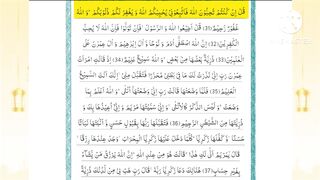 قُلْ إِنْ كُنْتُمْ تُحِبُّونَ اللّٰهَ فَاتَّبِعُونِي يُحْبِبْكُمُ اللّٰهُ وَ يَغْفِرْ لَكُمْ ذُنُوبَكُمْ ۗ وَ اللّٰهُ
غَفُورٌ رَّحِيمٌ (31) قُلْ أَطِيعُوا اللّٰهَ وَ الرَّسُولَ ۚ فَإِنْ تَوَلَّوْا فَإِنَّ اللّٰهَ لَا يُحِبُّ
الْكٰفِرِينَ (32) إِنَّ اللّٰهَ اصْطَفَى آدَمَ وَ نُوحًا وَ آلَ إِبْرٰهِيمَ وَ آلَ عِمْرٰنَ عَلَى
الْعٰلَمِينَ (33) ذُرِّيَّةً بَعْضُهَا مِنْ بَعْضٍ ۗ وَ اللّٰهُ سَمِيعٌ عَلِيمٌ (34) إِذْ قَالَتِ امْرَأَتُ
عِمْرٰنَ رَبِّ إِنِّي نَذَرْتُ لَكَ مَا فِي بَطْنِي مُحَرَّرًا فَتَقَبَّلْ مِنِّي ۚ إِنَّكَ أَنْتَ السَّمِيعُ
الْعَلِيمُ (35) فَلَمَّا وَضَعَتْهَا قَالَتْ رَبِّ إِنِّي وَضَعْتُهَا أُنْثَى ۗ وَ اللّٰهُ أَعْلَمُ بِمَا
وَضَعَتْ ۗ وَ لَيْسَ الذَّكَرُ كَالْأُنْثَى ۚ وَ إِنِّي سَمَّيْتُهَا مَرْيَمَ وَ إِنِّي أُعِيذُهَا بِكَ وَ
ذُرِّيَّتَهَا مِنَ الشَّيْطٰنِ الرَّجِيمِ (36) فَتَقَبَّلَهَا رَبُّهَا بِقَبُولٍ حَسَنٍ وَ أَنْبَتَهَا نَبَاتًا
حَسَنًا ۙ وَ كَفَّلَهَا زَكَرِيَّا ۚ كُلَّمَا دَخَلَ عَلَيْهَا زَكَرِيَّا الْمِحْرَابَ ۙ وَجَدَ عِنْدَهَا رِزْقًا ۚ قَالَ
يٰمَرْيَمُ أَنَّى لَكِ هٰذَا ۗ قَالَتْ هُوَ مِنْ عِنْدِ اللّٰهِ ۗ إِنَّ اللّٰهَ يَرْزُقُ مَنْ يَّشَآءُ
بِغَيْرِ حِسَابٍ (37) هُنَالِكَ دَعَا زَكَرِيَّا رَبَّهُ ۚ قَالَ رَبِّ هَبْ لِي مِنْ لَّدُنْكَ ذُرِّيَّةً